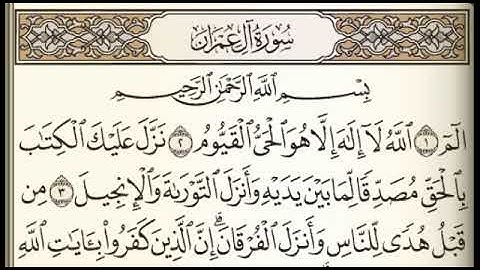 سُورَةُ آلِ عِمْرَانَ
بِسْمِ اللَّهِ الرَّحْمَٰنِ الرَّحِيمِ
الٓمٓ ١ اللَّهُ لَآ إِلَٰهَ إِلَّا هُوَ الْحَىُّ الْقَيُّومُ ٢ نَزَّلَ عَلَيْكَ الْكِتَٰبَ
بِالْحَقِّ مُصَدِّقًا لِّمَا بَيْنَ يَدَيْهِ وَأَنزَلَ التَّوْرَىٰةَ وَالْإِنجِيلَ ٣ مِن
قَبْلُ هُدًى لِّلنَّاسِ وَأَنزَلَ الْفُرْقَانَ ۗ إِنَّ الَّذِينَ كَفَرُوا۟ بِـَٔايَٰتِ اللَّهِ